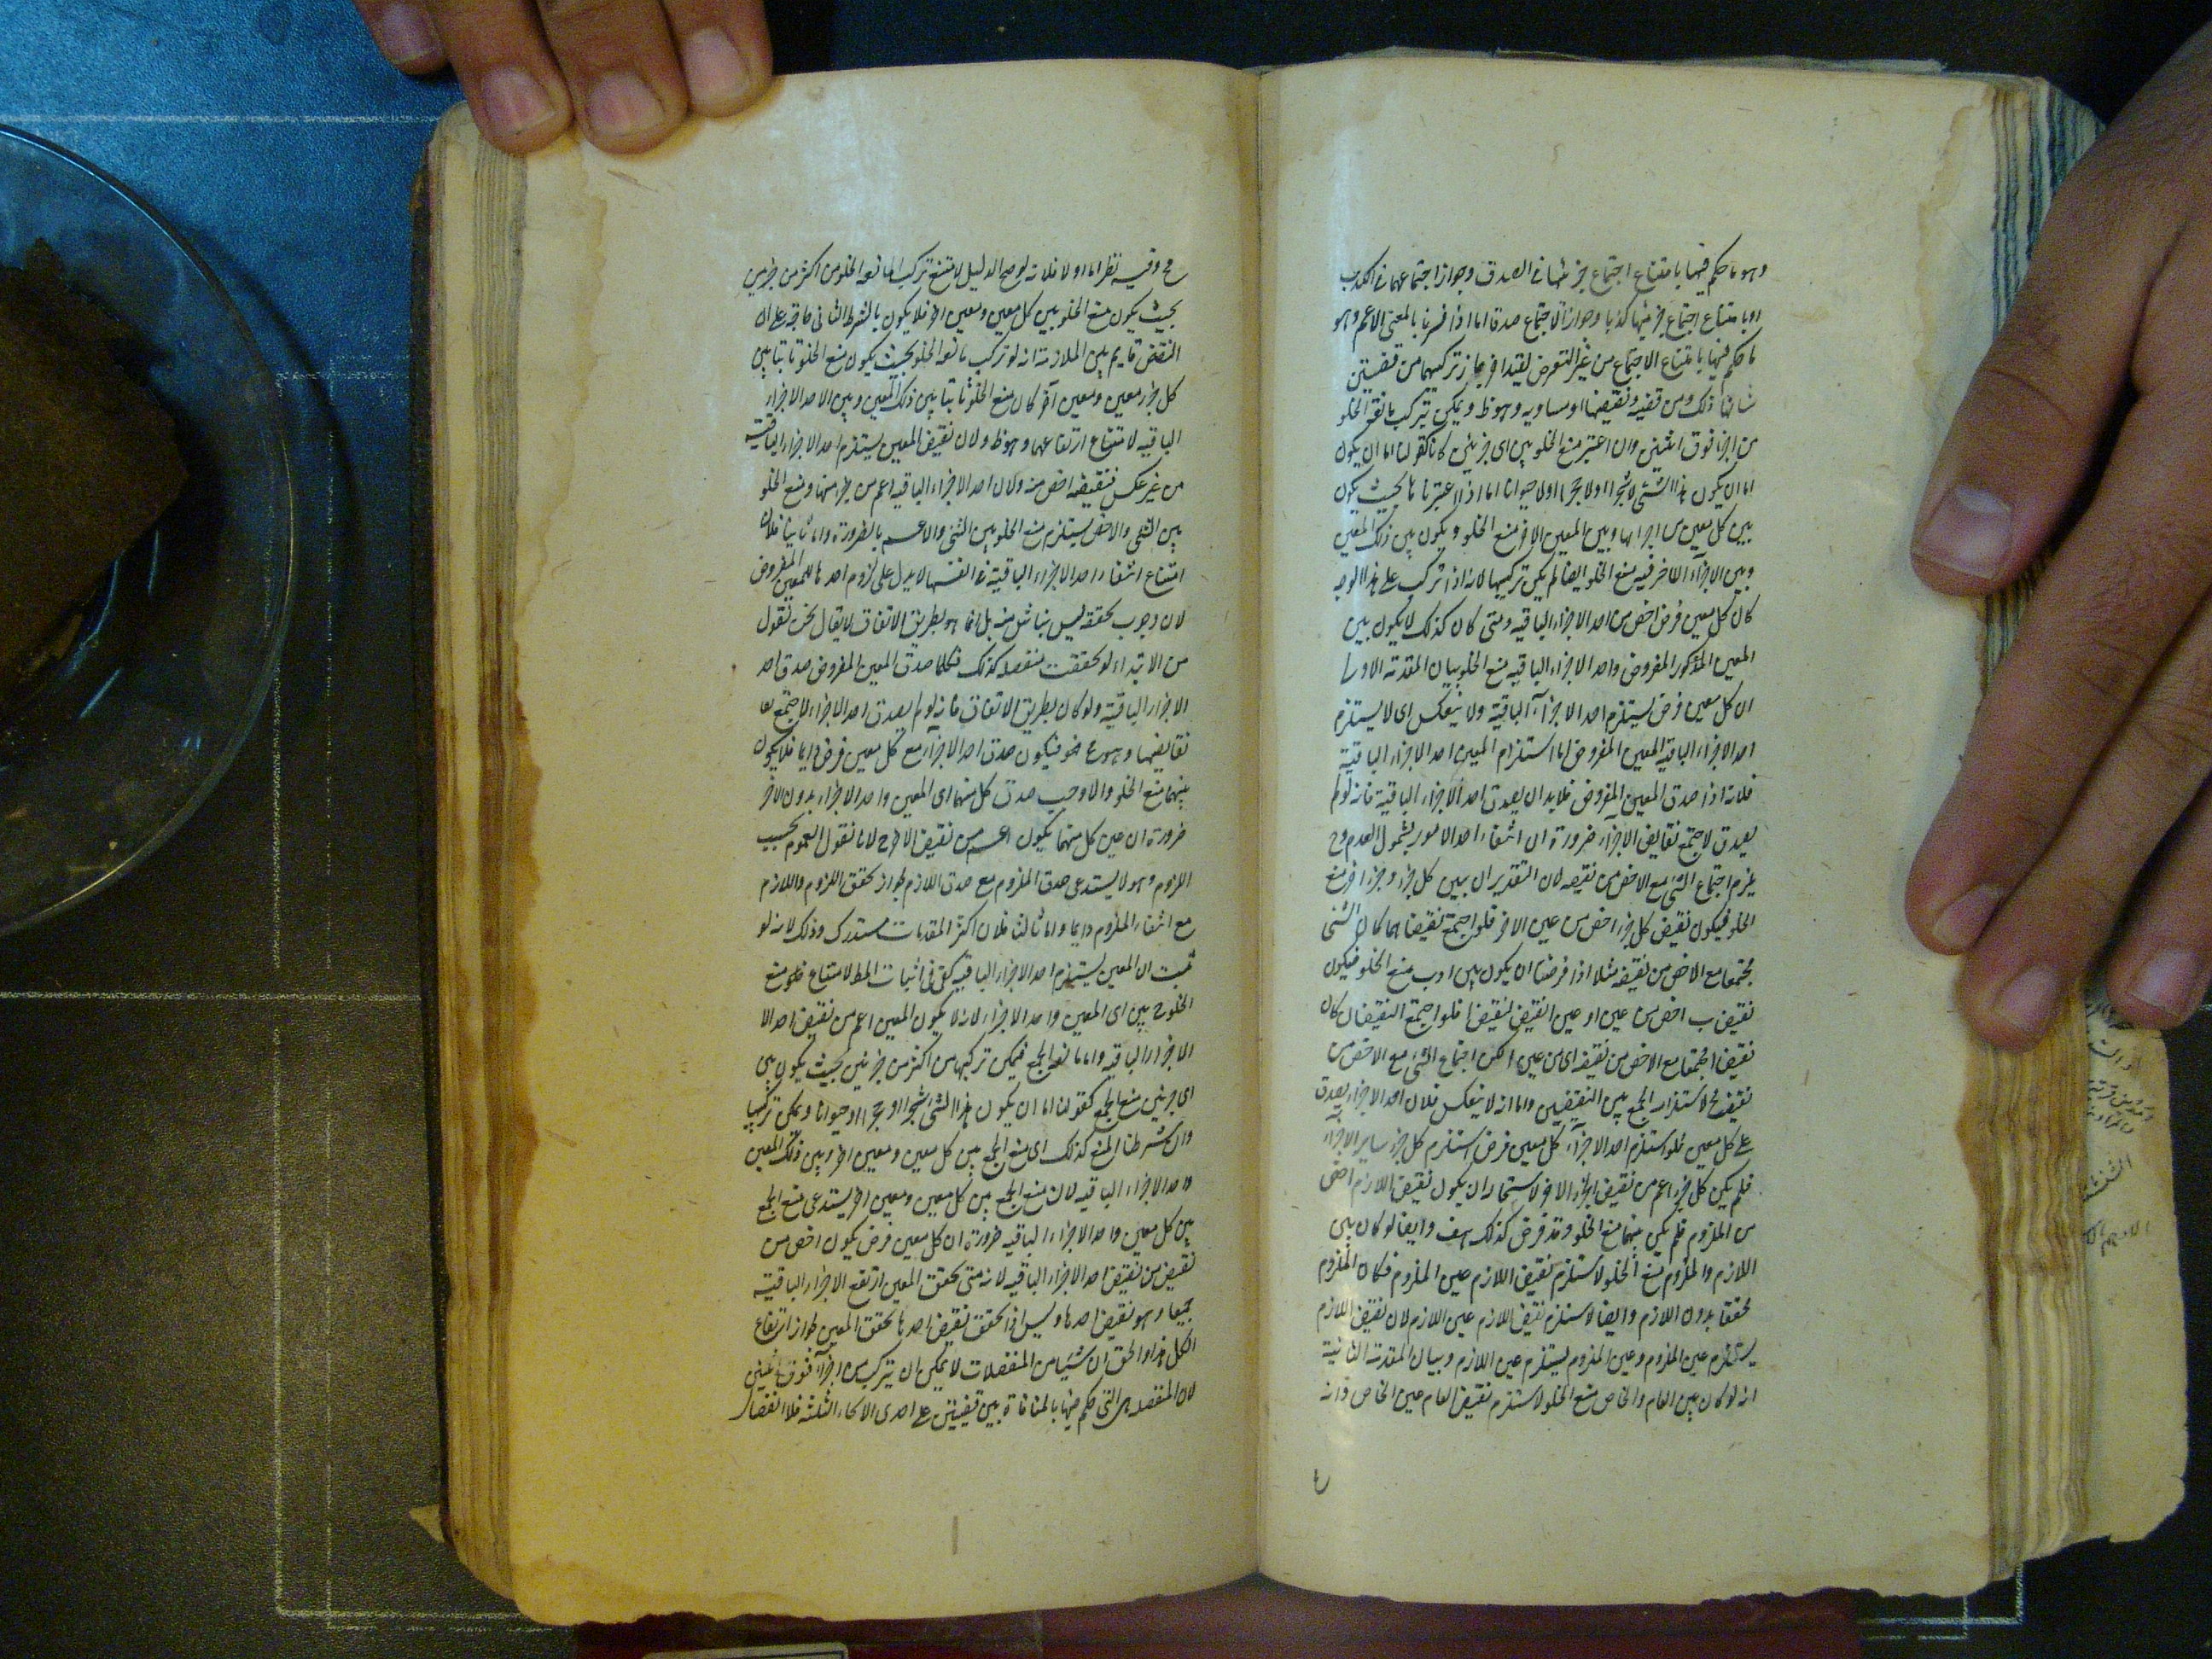 وهو ما حكم فيها بامتناع اجتماع جزئيها في الصدق وجواز اجتماعهما في الكذب
او بامتناع اجتماع جزئيها كذبا وجواز الاجتماع صدقا اما اذا فسرنا بالمعنى الاعم وهو
ما حكم فيها بامتناع الاجتماع من غير التعرض لقيد اخر جاز تركيبهما من قضيتين
ذلك ومن قضية ونقيضها او مساويه وهو ظ ويمكن تركب مانعة الخلو
من اجزا فوق اثنين وان اعتبر منع الخلو بين اى جزئين كانا كقولنا اما ان يكون
اما ان يكون هذا الشئ لا شجرا او لا حجرا او لا حيوانا اما اذا اعتبرناها بحيث يكون
بين كل معين من اجزائها وبين المعين الاخر منع الخلو ويكون بين ذلك المعين
وبين الاجزاء الاخر فيه منع الخلو ايضا لم يكن تركيبها لانه اذا تركب على هذا الوجه
كان كل معين فرض اخص من احد الاجزاء الباقية ومتى كان كذلك لا يكون بين
المعين المذكور المفروض واحد الاجزاء الباقية منع الخلو بيان المقدمة الاولى
ان كل معين فرض يستلزم احد الاجزاء الباقية ولا ينعكس اى لا يستلزم
احد الاجزاء الباقية المعين المفروض اما استلزام المعين احد الاجزاء الباقية
فلانه اذا صدق المعين المفروض فلا بد ان يصدق احد الاجزاء الباقية فانه لو لم
يصدق لاجتمع نقايض الاجزاء ضرورة ان انتفاء احد الامور بشمول العدم وح
يلزم اجتماع الشئ مع الاخص من نقيضه لان التقدير ان بين كل جزء وجزء اخر منع
الخلو فيكون نقيض كل جزء اخص من عين الاخر فلو اجتمع نقيضاهما كان الشئ
مجتمعا مع الاخص من نقيضه مثلا اذا فرضنا ان يكون بين ا وب منع الخلو فيكون
نقيض ب اخص من عين ا وعين ا نقيض لنقيض ا فلو اجتمع النقيضان كان
نقيض ا مجتمعا مع الاخص من نقيضه اى من عين ا لكن اجتماع الشئ مع الاخص من
نقيضه مح لاستلزامه الجمع بين النقيضين واما انه لا ينعكس فلان احد الاجزاء يصدق
على كل معين فلو استلزم احد الاجزاء كل معين فرض استلزم كل جزء ساير الاجزاء
فلم يكن كل جزء اعم من نقيض الجزء الاخر لاستحالة ان يكون نقيض اللازم اخص
من الملزوم فلم يكن بينهما منع الخلو وقد فرض كذلك هف وايضا لو كان بين
اللازم والملزوم منع الخلو لاستلزم نقيض اللازم عين الملزوم فكان الملزوم
محققا بدون اللازم وايضا لاستلزم نقيض اللازم عين اللازم لان نقيض اللازم
يستلزم عين الملزوم وعين الملزوم يستلزم عين اللازم وبيان المقدمة الثانية
انه لو كان بين العام والخاص منع الخلو لاستلزم نقيض العام عين الخاص وانه
مح وفيه نظر اما اولا فلانه لو صح الدليل لامتنع تركب مانعة الخلو من اكثر من جزئين
بحيث يكون منع الخلو بين كل معين ومعين اخر فلا يكون بالشرط الثانى حاجة على ان
النقض قايم بين الملازمة انه لو تركب مانعة الخلو بحيث يكون منع الخلو ثابتا بين
كل جزء معين ومعين آخر كان منع الخلو ثابتا بين ذلك المعين وبين الاحد الاجزاء
الباقية لامتناع ارتفاعهما وهو ظ ولان نقيض المعين يستلزم احد الاجزاء الباقية
من غير عكس فنقيضه اخص منه ولان احد الاجزاء الباقية اعم من جزء منها ومنع الخلو
بين الشئ والاخص يستلزم منع الخلو بين الشئ والاعم بالضرورة واما ثانيا فلان
امتناع انتفاء احد الاجزاء الباقية في نفسها لا يدل على لزوم احدها للمعين المفروض
لان وجوب تحققه ليس بناشئ منه بل انما هو بطريق الاتفاق لا يقال نحن نقول
من الابتداء لو تحققت منفصلة كذلك فكلما صدق المعين المفروض صدق احد
الاجزاء الباقية ولو كان بطريق الاتفاق فانه لو لم يصدق احد الاجزاء لاجتمع
نقايضها وهو مح فيكون صدق احد الاجزاء مع كل معين فرض دايما فلا يكون
بينهما منع الخلو والا وجب صدق كل منهما اى المعين واحد الاجزاء بدون الاخر
ضرورة ان عين كل منهما يكون اعم من نقيض الاخر لانا نقول العموم بحسب
اللزوم وهو لا يستدعى صدق الملزوم مع صدق اللازم لجواز تحقق اللزوم واللازم
مع انتفاء الملزوم دايما واما ثالثا فلان اكثر المقدمات مستدرك وذلك لانه لو
ثبت ان المعين يستلزم احد الاجزاء الباقية كفى في اثبات المط لامتناع منع
الخلو ح بين اى المعين واحد الاجزاء لانه لا يكون المعين اعم من نقيض احد الا
الاجزاء الباقية واما مانعة الجمع فيمكن تركيبها من اكثر من جزئين بحيث يكون بين
اى جزئين منع الجمع كقولنا اما ان يكون هذا الشئ شجرا او حجرا او حيوانا ويمكن تركيبها
وان شرطنا المنع كذلك اى منع الجمع بين كل معين ومعين اخر وبين ذلك المعين
واحد الاجزاء الباقية لان منع الجمع بين كل معين ومعين اخر يستدعى منع الجمع
بين كل معين واحد الاجزاء الباقية ضرورة ان كل معين فرض يكون اخص من
نقيض من نقيض احد الاجزاء الباقية لانه متى تحقق المعين ارتفع الاجزاء الباقية
جميعا وهو نقيض احدها وليس اذا تحقق نقيض احدها تحقق المعين لجواز ارتفاع
الكل هذا والحق ان شيئا من المنفصلات لا يمكن ان يتركب من اجزاء فوق اثنين
لان المنفصلة هى التى حكم فيها بالمنافاة بين قضيتين على احدى الانحاء الثلثة فلا انفصال